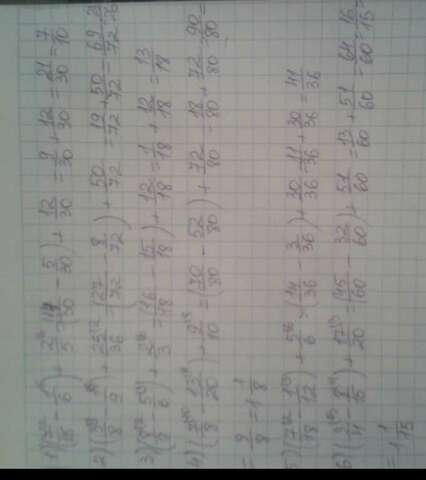 1) (7/15 - 1/6) + 2/5 = (14/30 - 5/30) + 12/30 = 9/30 + 12/30 = 21/30 = 7/10
2) (3/8 - 1/9) + 25/36 = (27/72 - 8/72) + 50/72 = 19/72 + 50/72 = 69/72 =
3) (8/9 - 5/6) + 2/3 = (16/18 - 15/18) + 12/18 = 1/18 + 12/18 = 13/18
4) (7/8 - 13/20) + 9/10 = (70/80 - 52/80) + 72/80 = 18/80 + 72/80 = 90/80 =
= 9/8 = 1 1/8
5) (7/18 - 1/12) + 5/6 = (14/36 - 3/36) + 30/36 = 11/36 + 30/36 = 41/36
6) (3/4 - 8/15) + 17/20 = (45/60 - 32/60) + 51/60 = 13/60 + 51/60 = 64/60 = 16/15 =
= 1 1/15